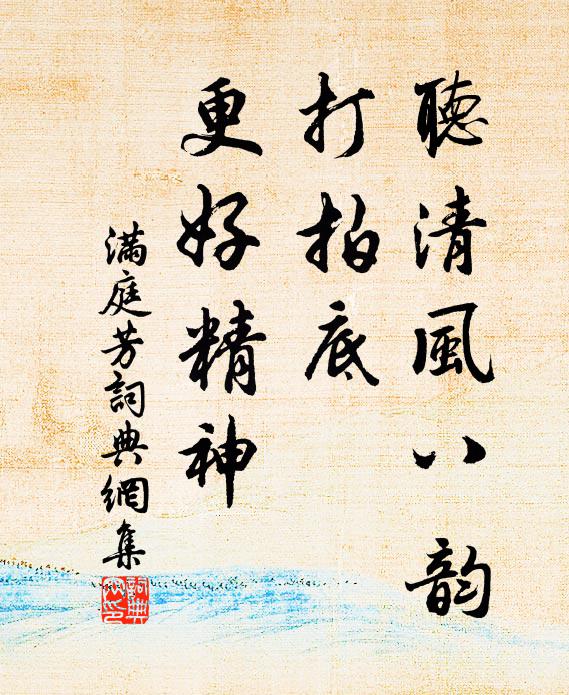 聽清風八韻
打拍底
更好精神
滿庭芳詞典網集